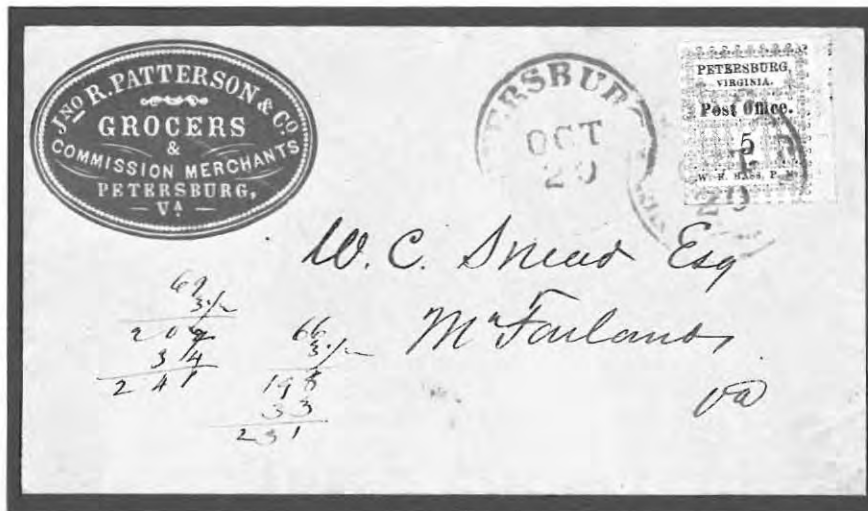 JNO R. PATTERSON & CO
GROCERS
&
COMMISSION MERCHANTS
PETERSBURG,
VA
ERSBUR
OCT
29
PETERSBURG,
VIRGINIA.
Post Office.
5
W. E. BASS, P. M.
29
W. C. Snead Esq
McFarlands
Va
69
3 1/2
209
34
241
66
3 1/2
198
33
231